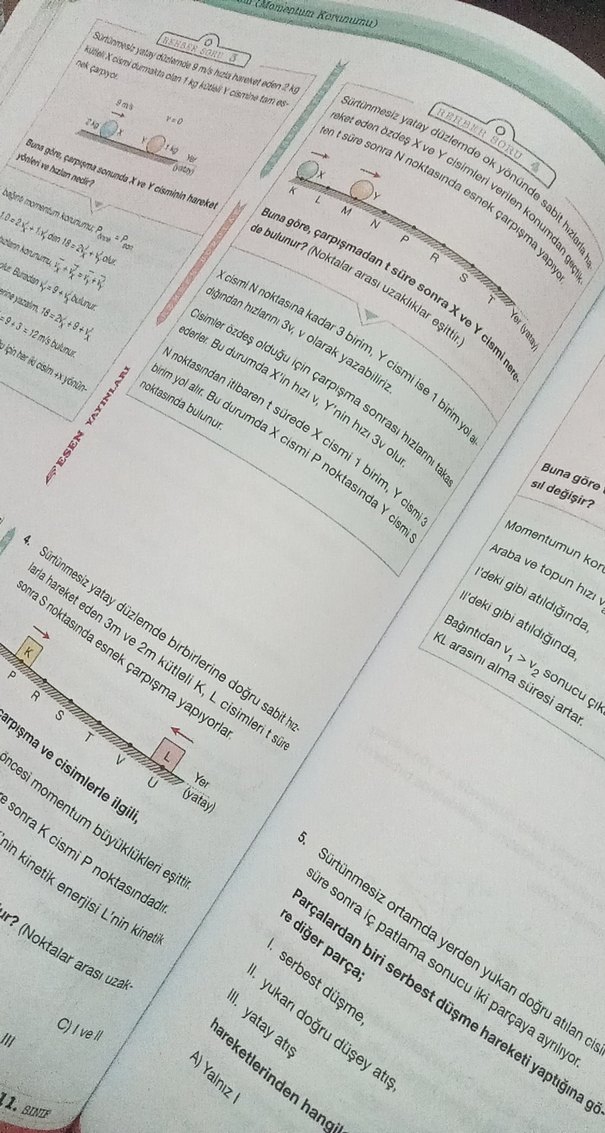 (Momentum Korunumu)
REHBER SORU 3
Sürtünmesiz yatay düzlemde 9 m/s hızla hareket eden 2 kg
kütleli X cismi durmakta olan 1 kg kütleli Y cismine tam es-
nek çarpıyor.
9 m/s
v=0
2 kg
X
Y
1 kg
Yer
(yatay)
Buna göre, çarpışma sonunda X ve Y cisminin hareket
yönleri ve hızları nedir?
momentum korunumu;
den
olur.
korunumu,
Buradan
bulunur.
yazalım.
= 9 + 3 = 12 m/s bulunur.
için her iki cisim +x yönün-
ESEN YAYINLARI
REHBER SORU 4
Sürtünmesiz yatay düzlemde ok yönünde sabit hızlarla ha-
reket eden özdeş X ve Y cisimleri verilen konumdan geçtik-
ten t süre sonra N noktasında esnek çarpışma yapıyor.
X
Y
K L M N P R S T
Yer (yatay)
Buna göre, çarpışmadan t süre sonra X ve Y cismi nere-
de bulunur? (Noktalar arası uzaklıklar eşittir.)
X cismi N noktasına kadar 3 birim, Y cismi ise 1 birim yol al-
dığından hızlarını 3v, v olarak yazabiliriz.
Cisimler özdeş olduğu için çarpışma sonrası hızlarını takas
ederler. Bu durumda X'in hızı v, Y'nin hızı 3v olur.
N noktasından itibaren t sürede X cismi 1 birim, Y cismi 3
birim yol alır. Bu durumda X cismi P noktasında Y cismi S
noktasında bulunur.
4. Sürtünmesiz yatay düzlemde birbirlerine doğru sabit hız-
larla hareket eden 3m ve 2m kütleli K, L cisimleri t süre
sonra S noktasında esnek çarpışma yapıyorlar.
K
L
P R S T V U
Yer
(yatay)
çarpışma ve cisimlerle ilgili,
öncesi momentum büyüklükleri eşittir.
sonra K cismi P noktasındadır.
kinetik enerjisi L'nin kinetik
(Noktalar arası uzak-
C) I ve II
III
11. SINIF
Buna göre
sıl değişir?
Momentumun
Araba ve topun hızı
I'deki gibi atıldığında,
II'deki gibi atıldığında,
Bağıntıdan v₁ > v₂ sonucu
KL arasını alma süresi artar.
5. Sürtünmesiz ortamda yerden yukarı doğru atılan
süre sonra iç patlama sonucu iki parçaya ayrılıyor.
Parçalardan biri serbest düşme hareketi yaptığına gö-
re diğer parça;
I. serbest düşme,
II. yukarı doğru düşey atış,
III. yatay atış
hareketlerinden
A) Yalnız I